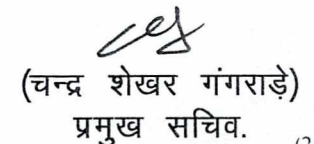 (चन्द्र शेखर गंगराड़े)
प्रमुख सचिव.